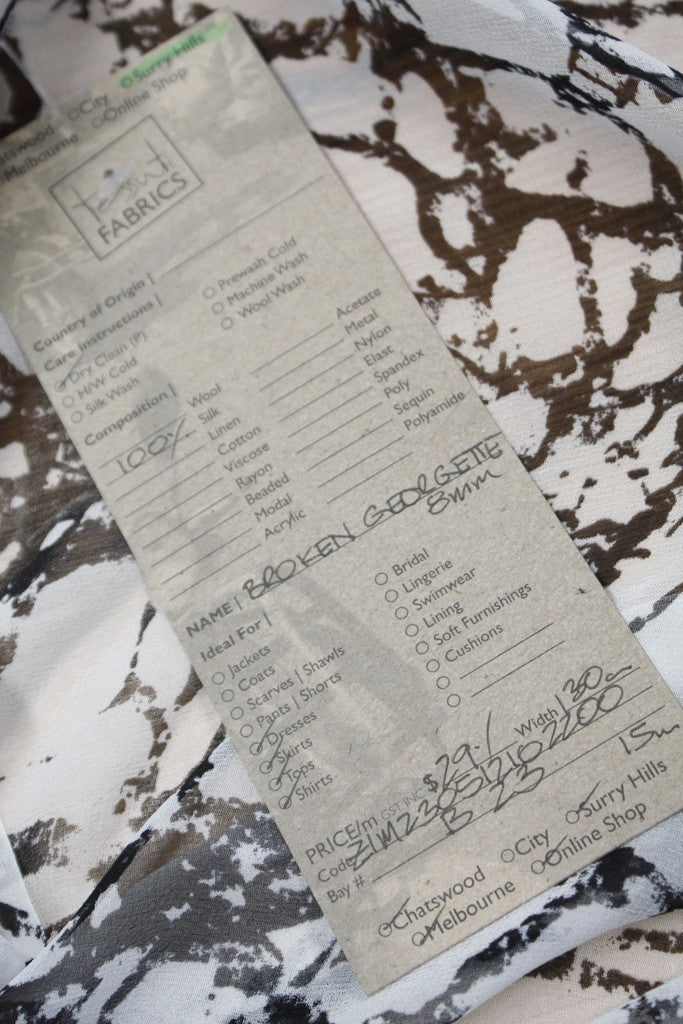 Chatswood ○City ○Surry Hills
Melbourne ○Online Shop
FABRICS
Country of Origin |
Care Instructions | ○ Prewash Cold
Dry Clean (P) ○ Machine Wash
○ H/W Cold ○ Wool Wash
○ Silk Wash
Composition |
Wool Acetate
100% Silk Metal
Linen Nylon
Cotton Elast
Viscose Spandex
Rayon Poly
Beaded Sequin
Modal Polyamide
Acrylic
NAME | BROKEN GEORGETTE
8mm
Ideal For | ○ Bridal
○ Jackets ○ Lingerie
○ Coats ○ Swimwear
○ Scarves | Shawls ○ Lining
○ Pants | Shorts ○ Soft Furnishings
Dresses ○ Cushions
Skirts
Tops
Shirts
PRICE/m GST INC $29.- Width | 130cm
Code
Bay # B 23 15m
Chatswood ○City Surry Hills
Melbourne Online Shop